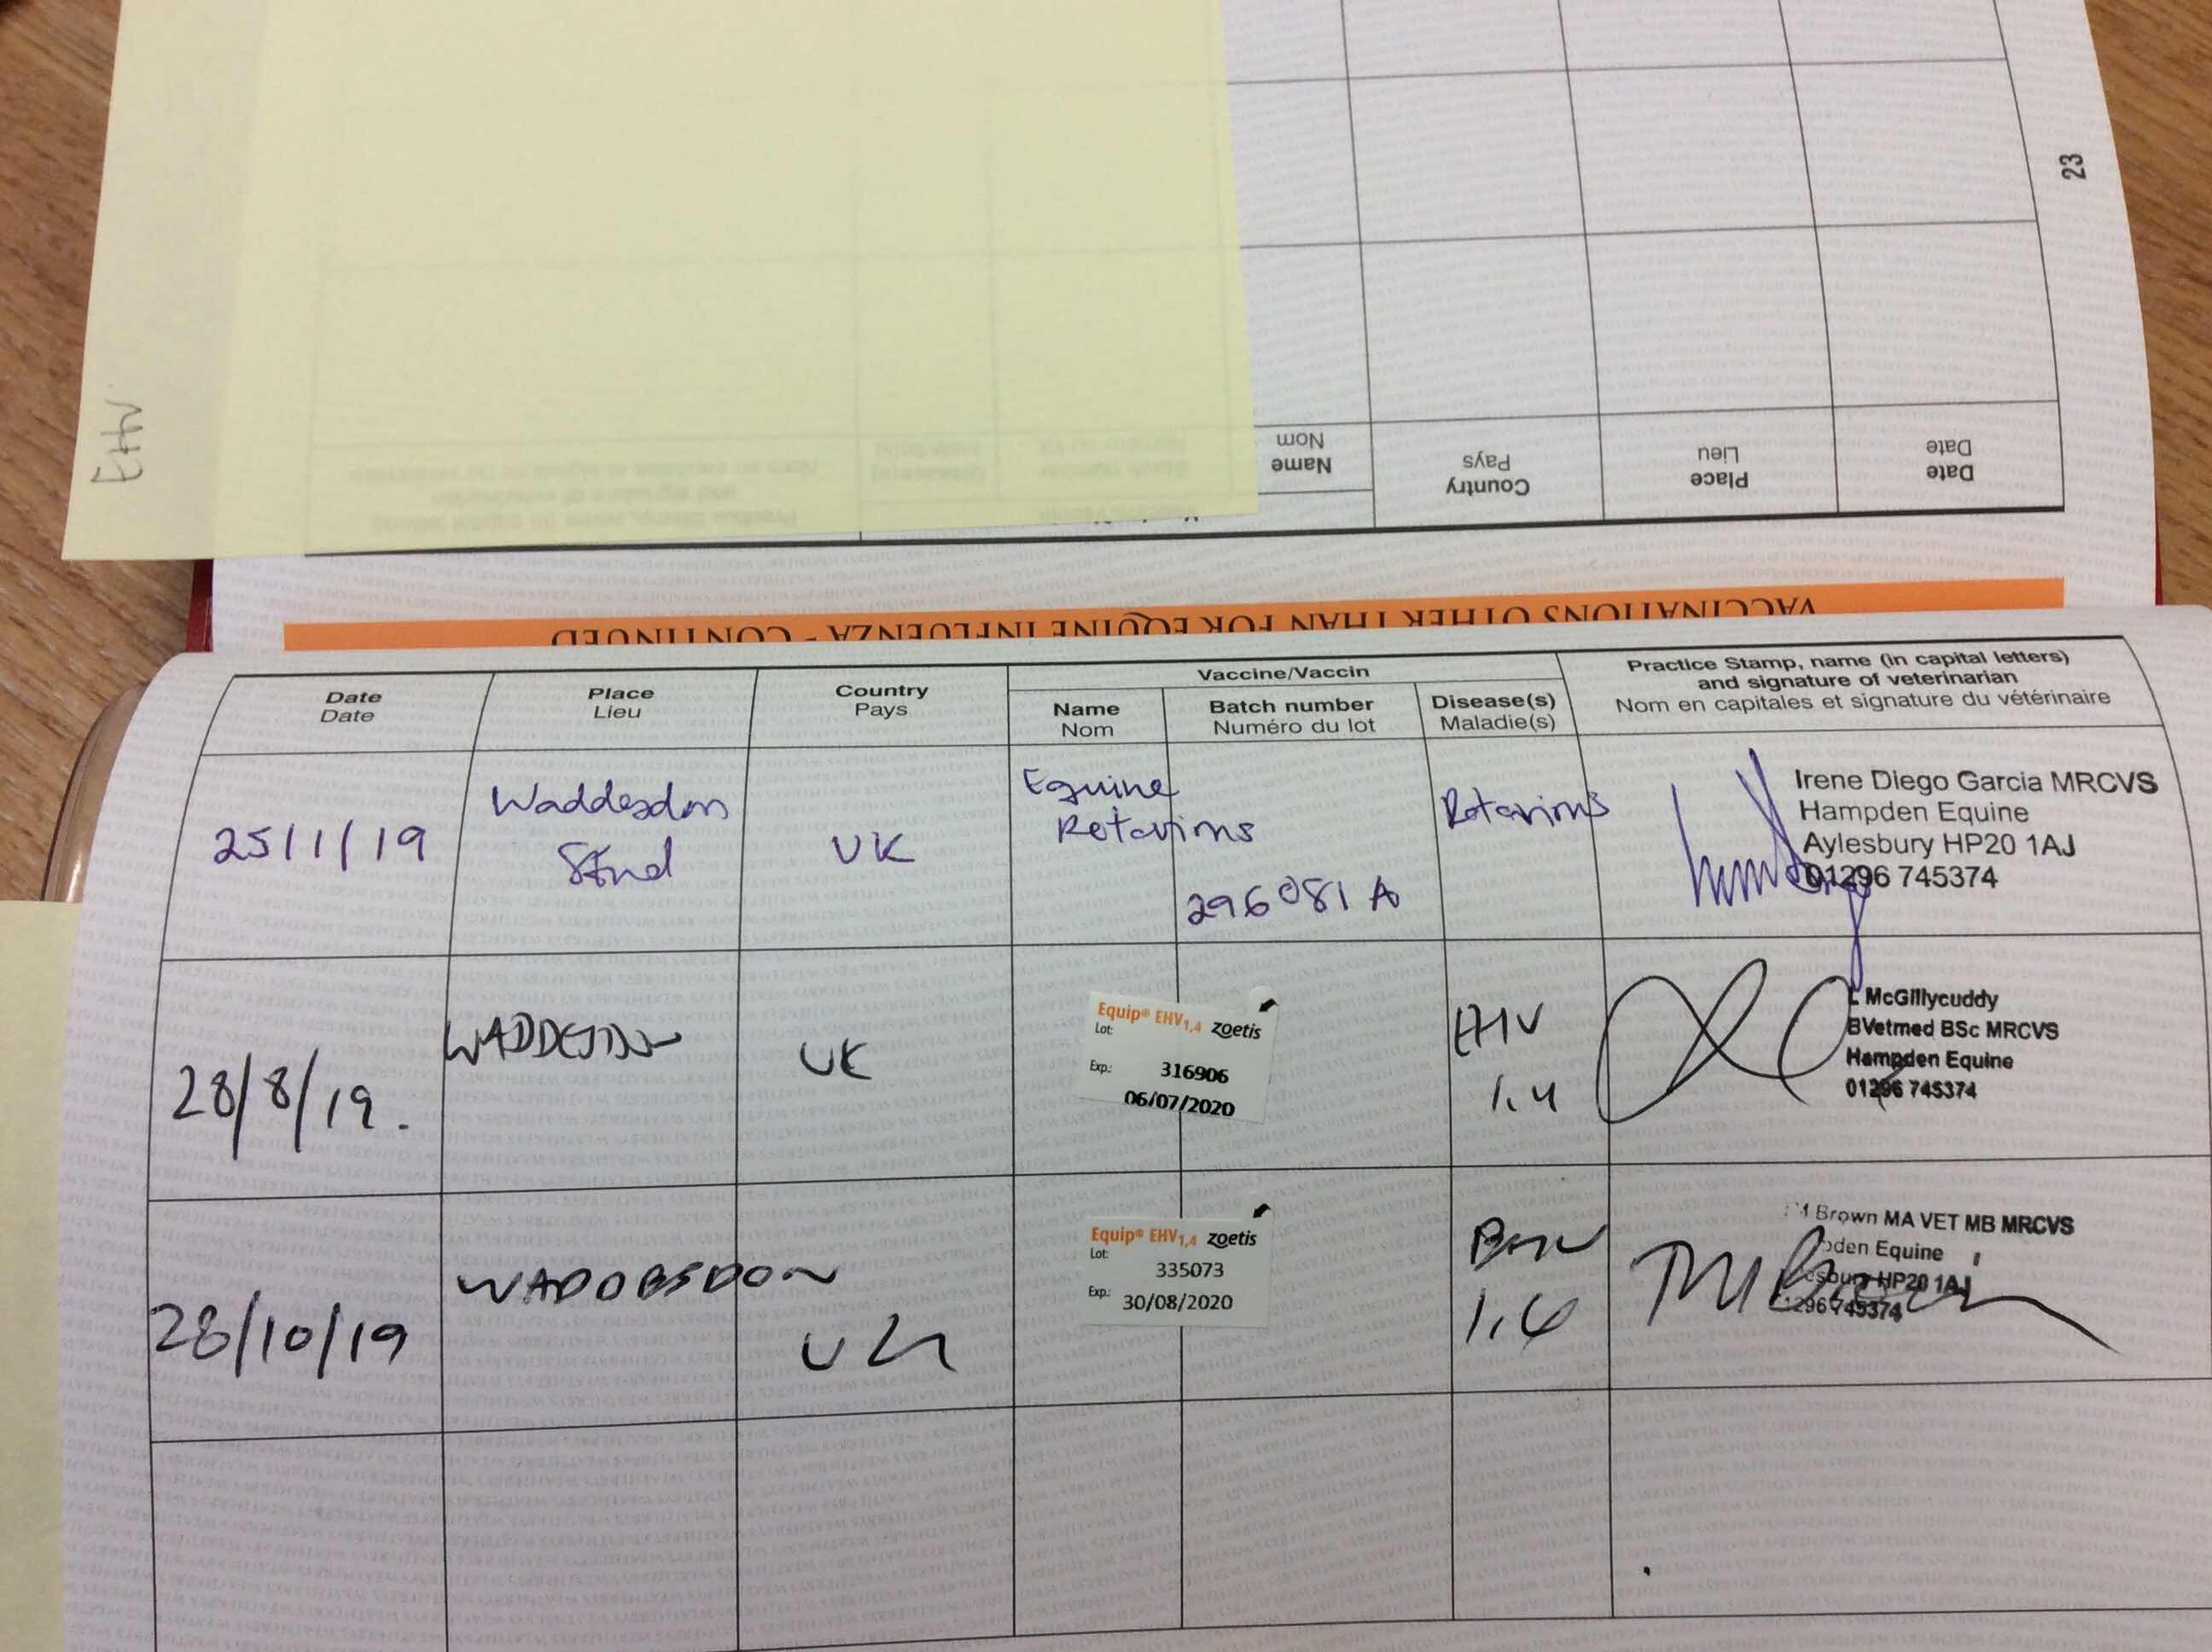 EHV
23
Name
Nom
Country
Pays
Place
Lieu
Date
Date
VACCINATIONS OTHER THAN FOR EQUINE INFLUENZA - CONTINUED
Date
Date
Place
Lieu
Country
Pays
Vaccine/Vaccin
Name
Nom
Batch number
Numéro du lot
Disease(s)
Maladie(s)
Practice Stamp, name (in capital letters)
and signature of veterinarian
Nom en capitales et signature du vétérinaire
25/1/19
Waddesdon
Stud
UK
Equine
Rotavirus
296081A
Rotavirus
Irene Diego Garcia MRCVS
Hampden Equine
Aylesbury HP20 1AJ
01296 745374
28/8/19.
WADDESDON
UK
Equip® EHV1,4 zoetis
Lot:
Exp: 316906
06/07/2020
EHV
1,4
L McGillycuddy
BVetmed BSc MRCVS
Hampden Equine
01296 745374
28/10/19
WADDESDON
UK
Equip® EHV1,4 zoetis
Lot:
335073
Exp: 30/08/2020
EHV
1,4
Brown MA VET MB MRCVS
pden Equine
esbury HP20 1AJ
1296 745374